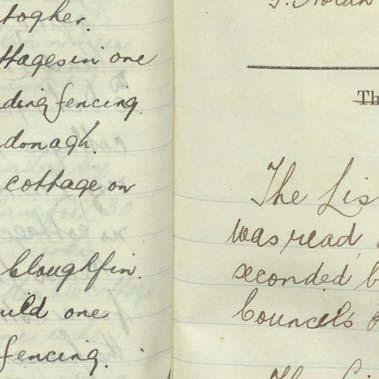 togher.
ttages in one
ding fencing.
donagh.
cottage on
Cloughfin.
uld one
fencing.
J. Nolan
Th
The Lis
was read
seconded b
Councils